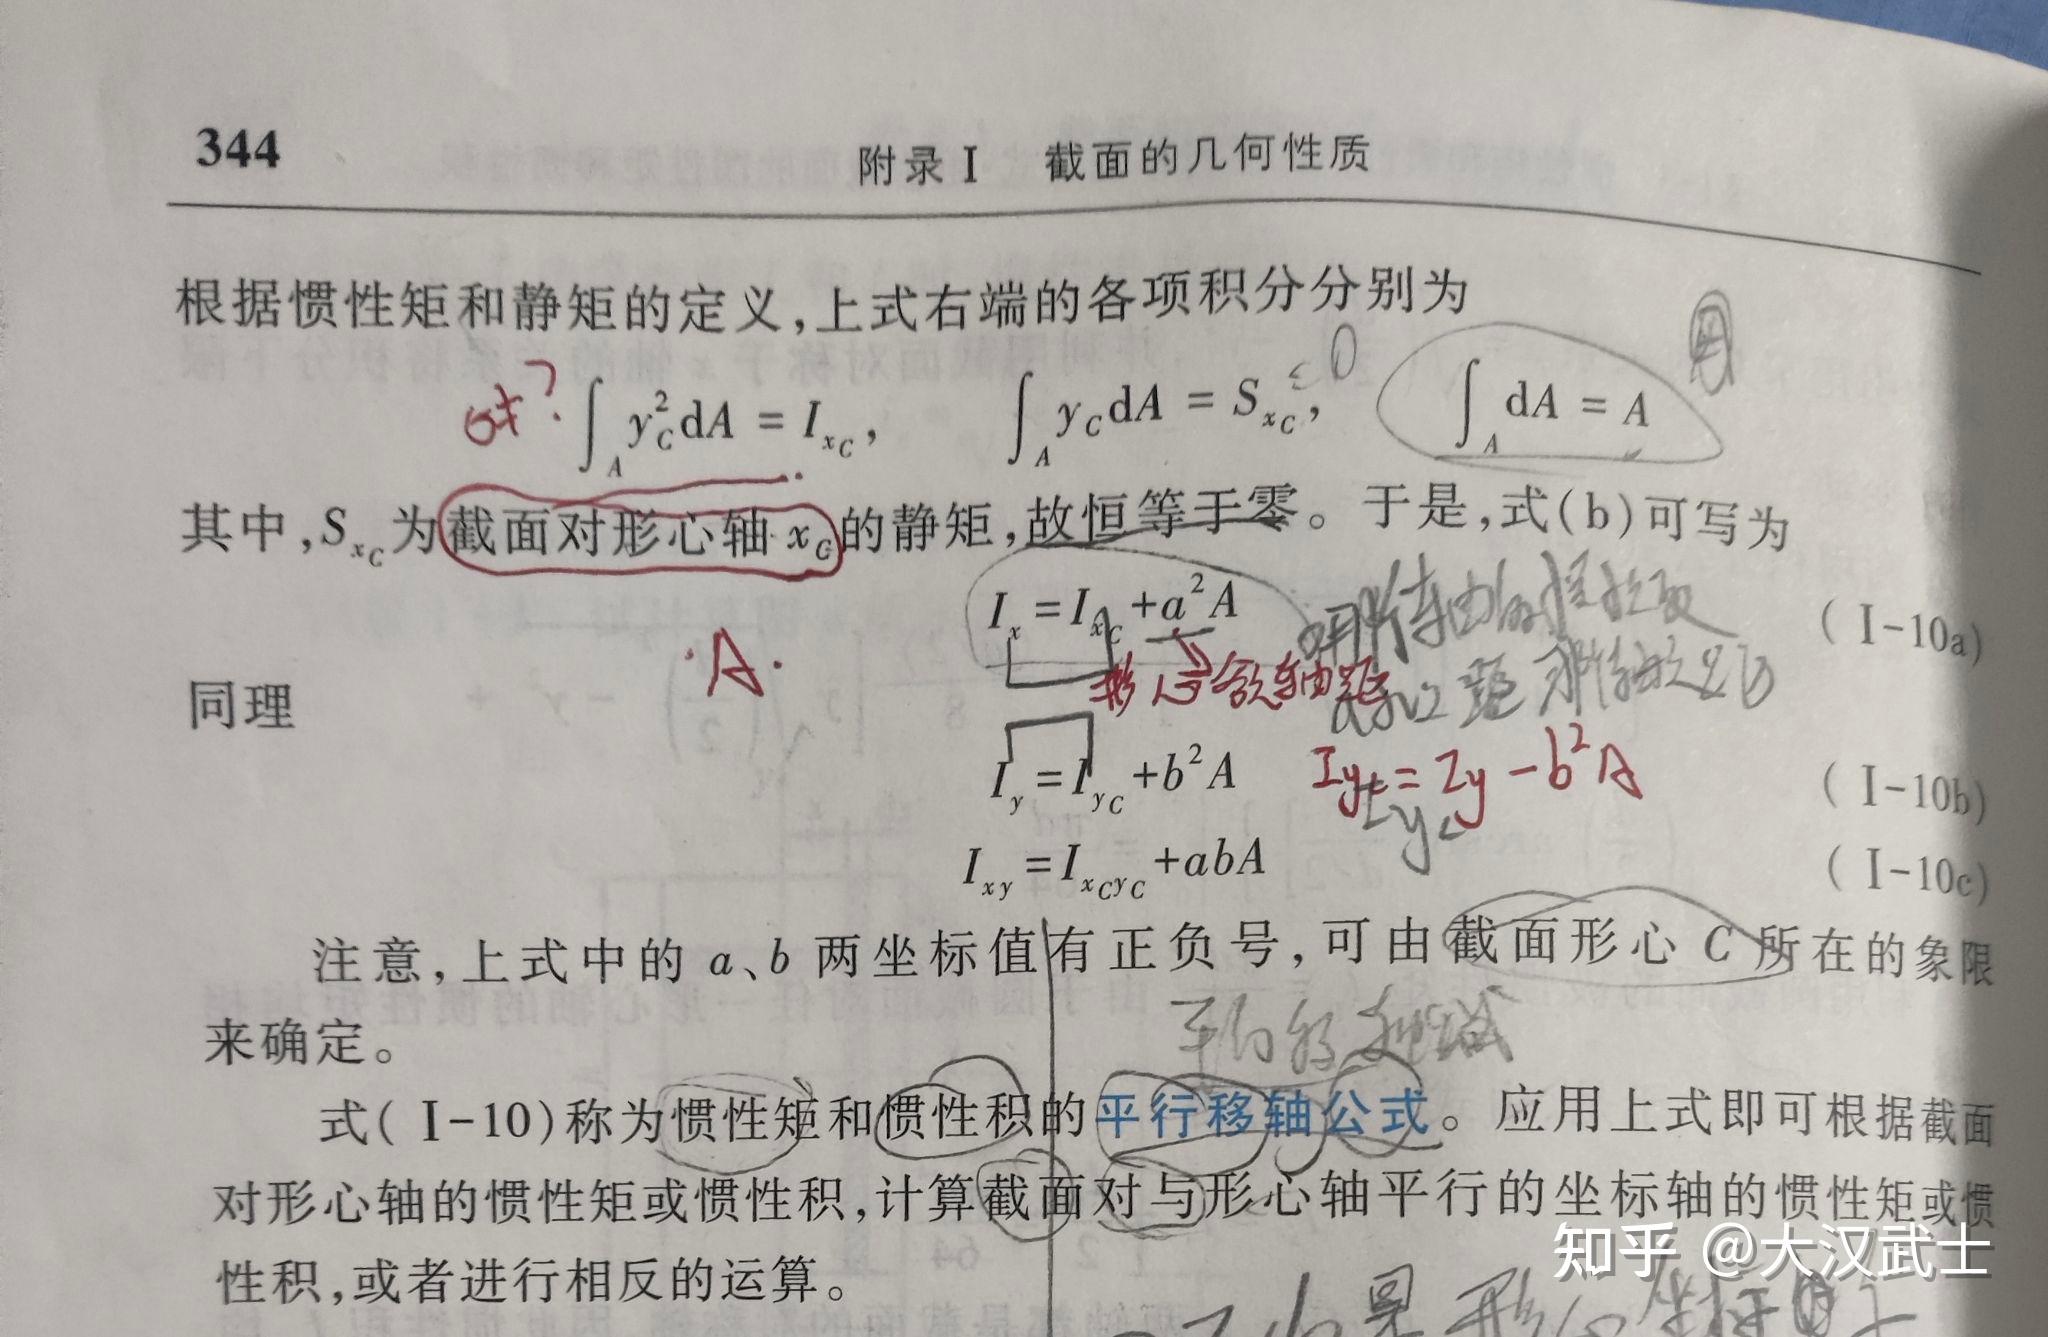 344
附录Ⅰ 截面的几何性质
根据惯性矩和静矩的定义,上式右端的各项积分分别为
∫_A y_C²dA = I_{x_C}, ∫_A y_C dA = S_{x_C}, = 0 ∫_A dA = A
其中,S_{x_C}为截面对形心轴 x_C的静矩,故恒等于零。于是,式(b)可写为
I_x = I_{x_C} + a²A (Ⅰ-10a)
A
同理
I_y = I_{y_C} + b²A Iyc = Iy - b²A (Ⅰ-10b)
yc
I_{xy} = I_{x_C y_C} + abA (Ⅰ-10c)
注意,上式中的 a、b 两坐标值有正负号,可由截面形心 C 所在的象限
来确定。
式(Ⅰ-10)称为惯性矩和惯性积的平行移轴公式。应用上式即可根据截面
对形心轴的惯性矩或惯性积,计算截面对与形心轴平行的坐标轴的惯性矩或惯
性积,或者进行相反的运算。
知乎 @大汉武士